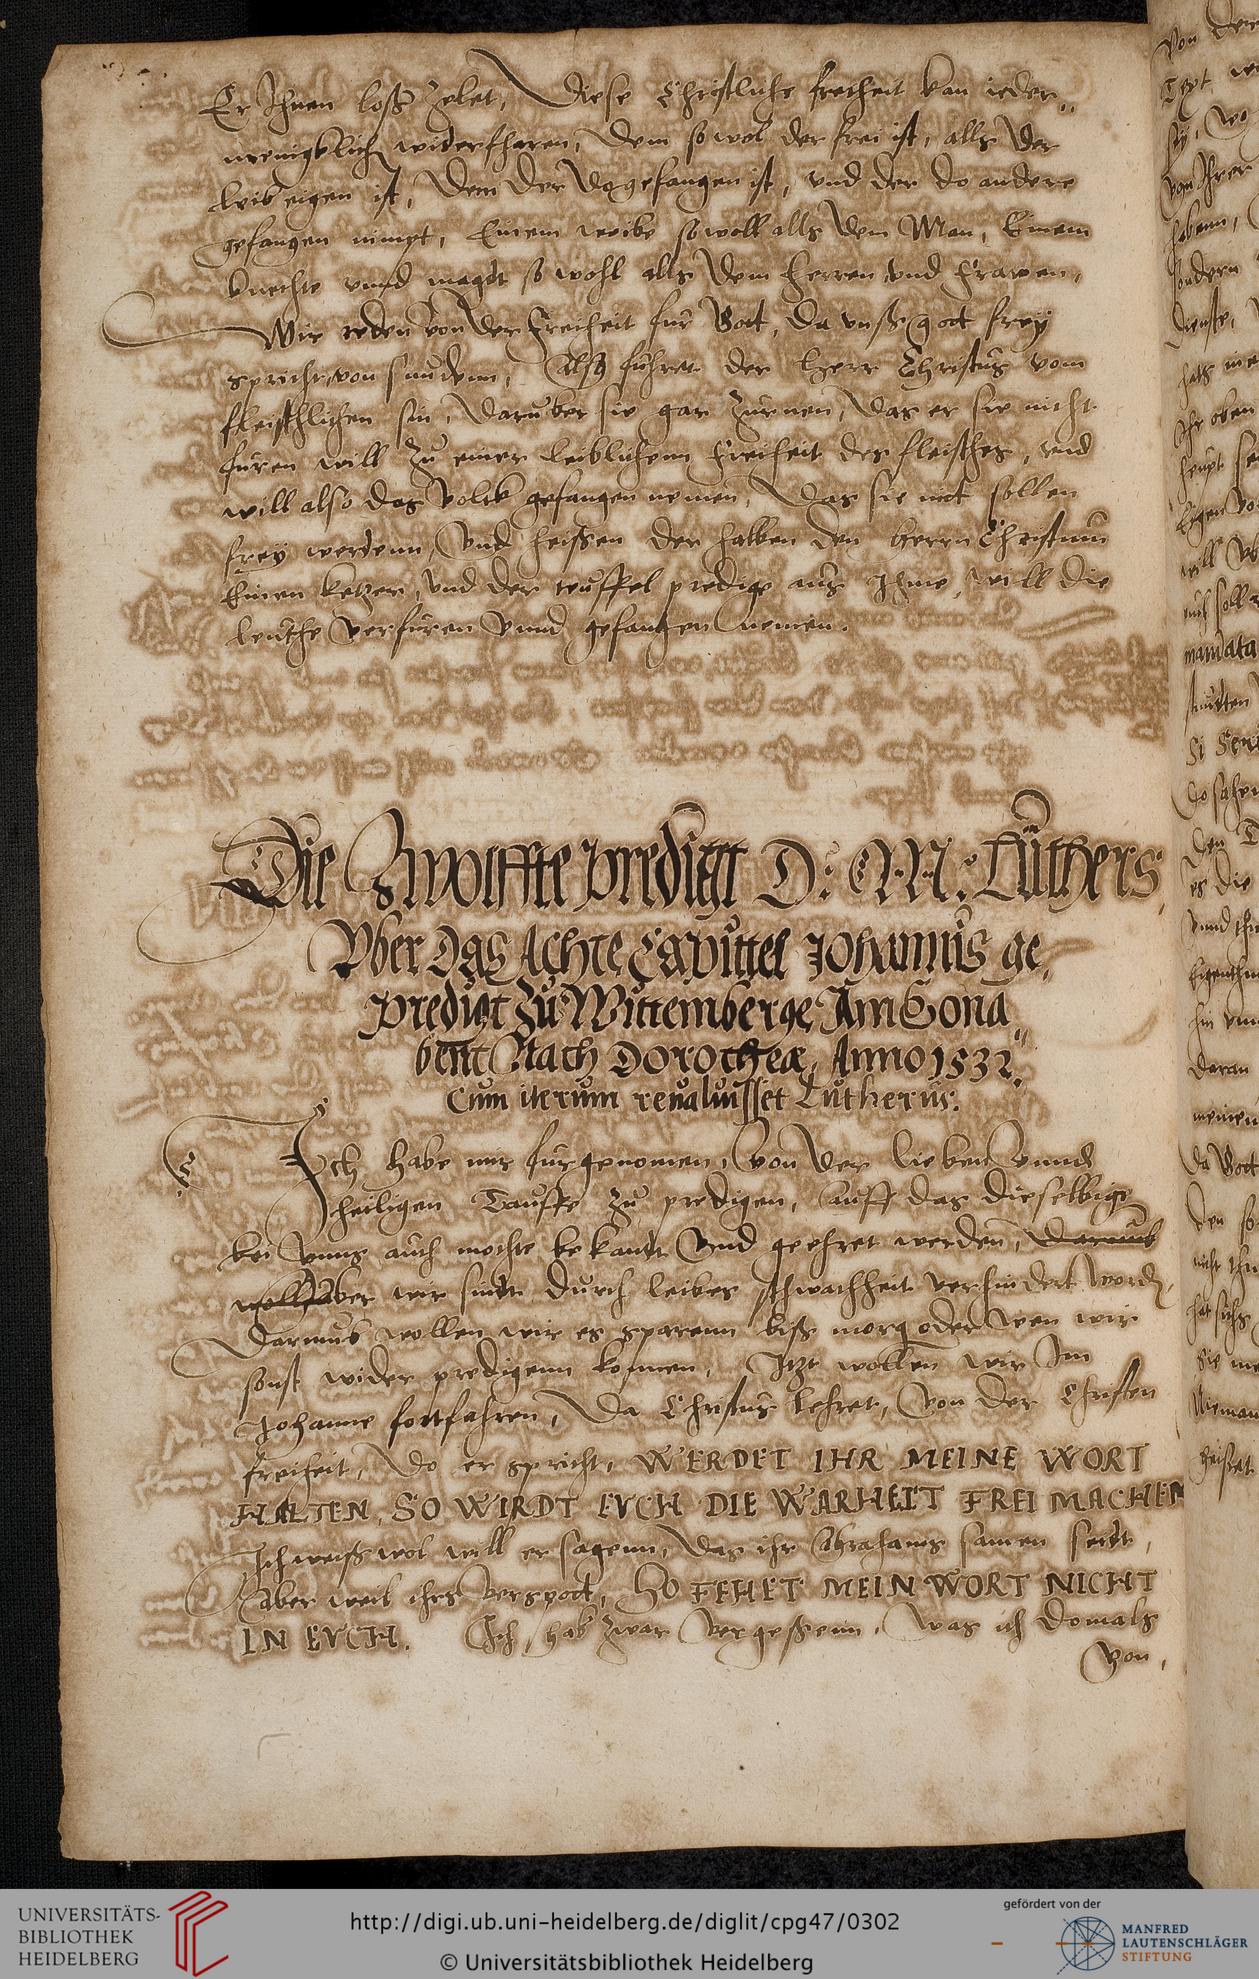 Er Ihnen loß zelet, Diese Christliche freiheit kan ieder„
menigklich widerfharen, Dem so wol der frei ist, alls der
leib eigen ist, Dem Der Da gefangen ist, vnd der do andere
gefangen nimpt, Einem weibe so woll alls dem Man, Einem
knechte vnnd magdt so wohl alls Dem herren vnd Frawen,
Wir reden von der Freiheit fur Gott, Da vnß gott frey
spricht von sunden, Also fuhret der Herr Christus vom
fleischlichen sin, Daruber sie gar zurnen, Das er sie nicht
furen will zu einer leiblichenn Freiheit des fleisches, vnd
will also das volck gefangen nemen, Das sie nit sollen
frey werdenn, Vnd heissen der halben den herrn Christum
Einen ketzer, vnd der teuffel predige aus Ihme, will die
leuthe verfuren vnnd gefangen nemen.
Die Zwolffte predigt D: M: Luthers,
Vber Das Achte Capittel Johannis ge„
predigt Zu Wittemberge, Am Sona„
bent Nach Dorotheæ, Anno 1532.
Cum iterum reualuisset Lutherus.
Ich habe mir furgenomen, Von der lieben vnnd
heiligen Tauffe zu predigen, Auff das dieselbige
bei vnns auch mochte bekandt Vnd geehret werden, Darumb
Aber wir sindt durch leibes schwachheit verhindert word,
Darumb wollen wir es sparenn biß morg oder wen wir
sonst wider predigenn konnen, Itzt wollen wir Im
Johanne fortfahren, Da Christus lehret, Von der Christen
freiheit, Do er spricht, WERDET IHR MEINE WORT
HALTEN, SO WIRDT EVCH DIE WARHEIT FREI MACHEN
Ich weiß wol will er sagenn, das ihr Abrahams samen seidt,
Aber weil ihrs verspott, SO FEHET MEIN WORT NICHT
IN EVCH. Ich hab zwar vergessenn, Was ich domals
von,
UNIVERSITÄTS-
BIBLIOTHEK
HEIDELBERG
http://digi.ub.uni-heidelberg.de/diglit/cpg47/0302
© Universitätsbibliothek Heidelberg
gefördert von der
MANFRED
LAUTENSCHLÄGER
STIFTUNG